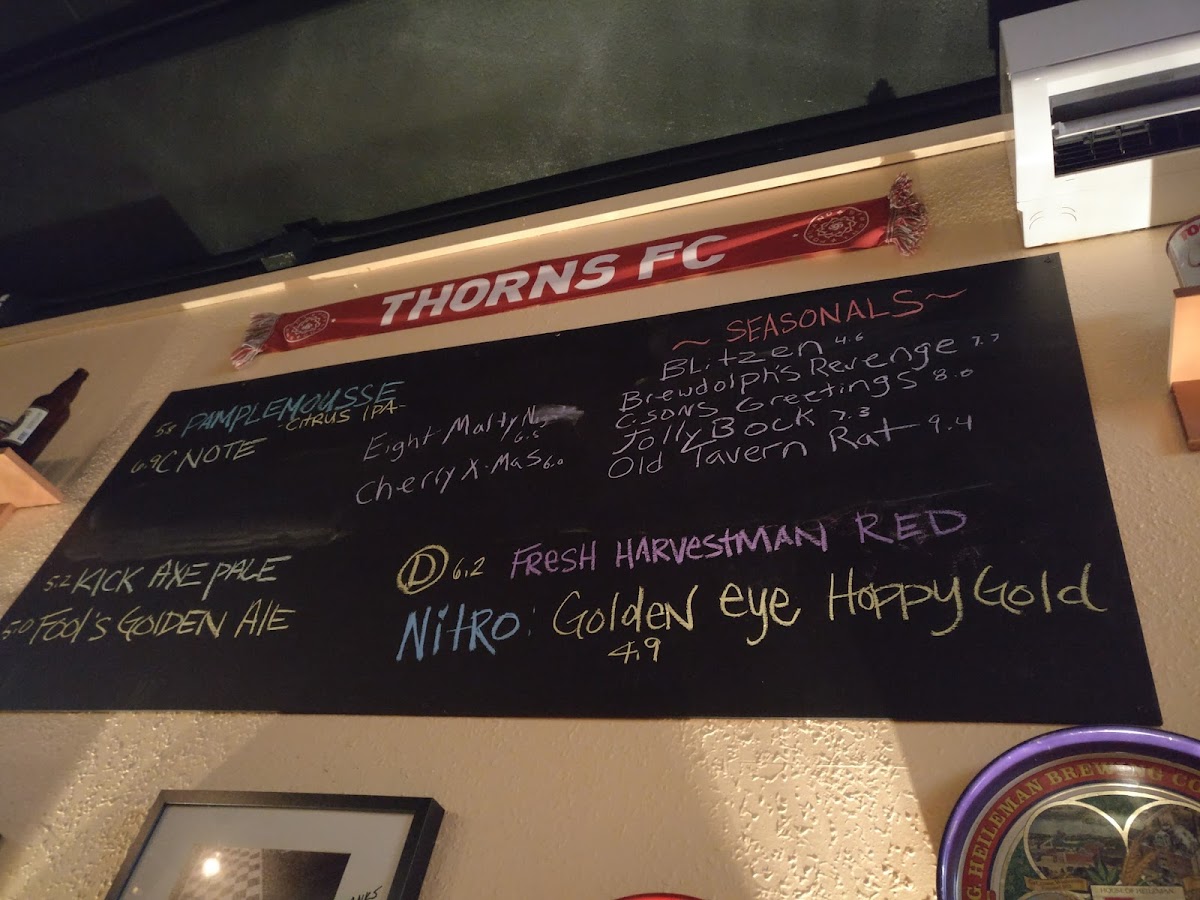 THORNS FC
5.8 PAMPLEMOUSSE
CITRUS IPA-
6.9 C NOTE
5.2 KICK AXE PALE
5.0 FOOL'S GOLDEN ALE
Eight Malty
6.5
Cherry X-Mas 6.0
~ SEASONALS ~
BLitzen 4.6
Brewdolph's Revenge 7.7
GSONS Greetings 8.0
Jolly Bock 7.3
Old Tavern Rat 9.4
D 6.2 FRESH HARVESTMAN RED
NITRO: Golden eye Hoppy Gold
4.9
G HEILEMAN BREWING CO